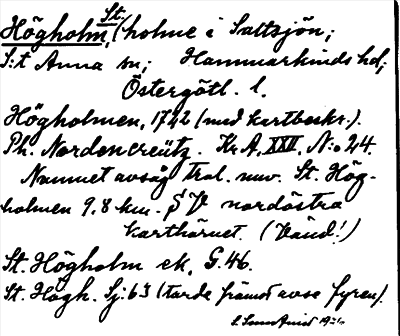 Högholm, St, (holme i Saltsjön;
S:t Anna sn; Hammarkinds hd;
Östergötl. l.
Högholmen, 1722 (med kartbeskr.).
Ph. Nordencreütz. Kr.A. XXII, N:o 24.
Namnet avsåg trol. nuv. St. Hög-
holmen 9,8 km. SV nordöstra
karthörnet. (Vänd!)
St. Högholm ek. G.46.
St. Högh. Sj:63 (torde främst avse fyren).